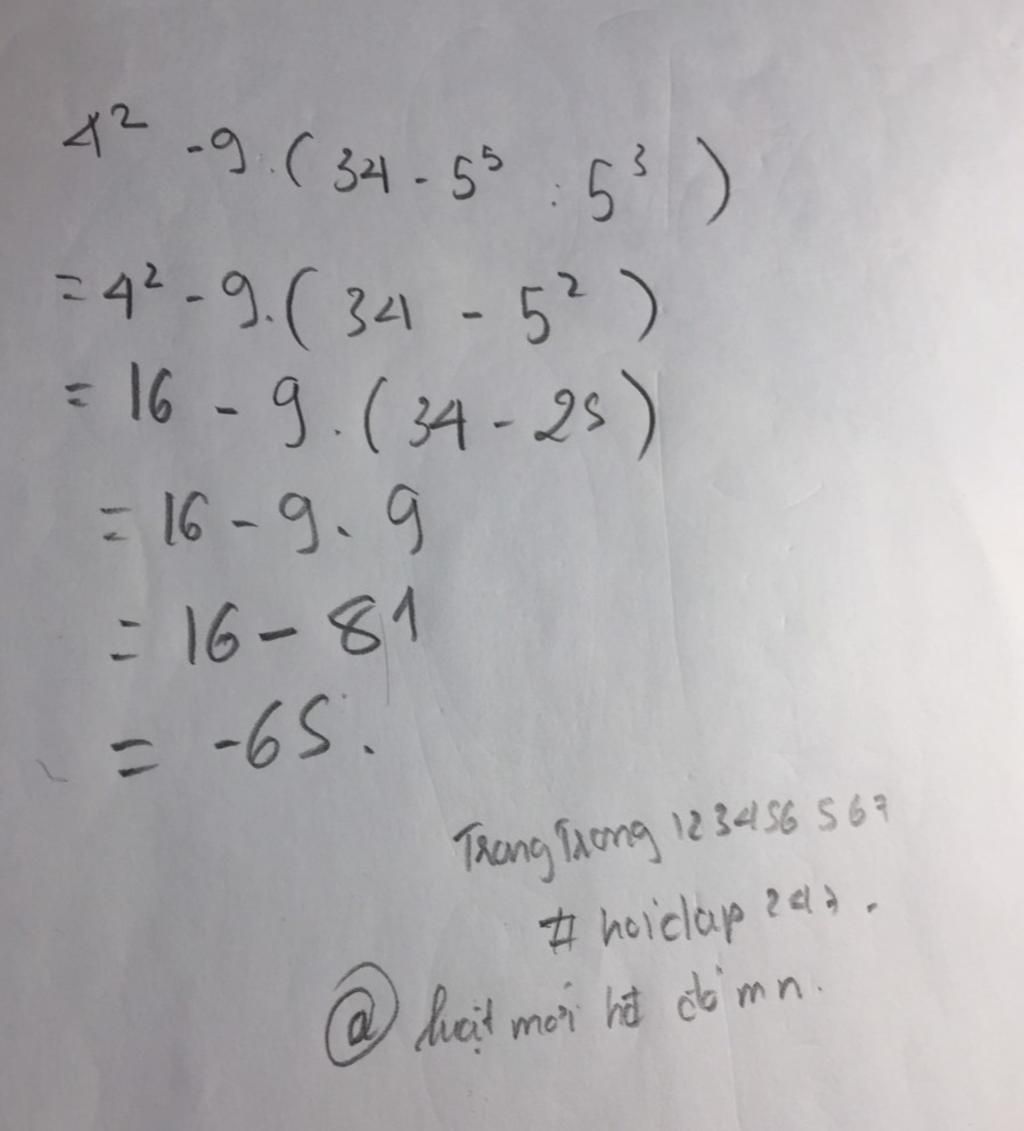 4² - 9.(34 - 5⁵ : 5³)
= 4² - 9.(34 - 5²)
= 16 - 9.(34 - 25)
= 16 - 9.9
= 16 - 81
= -65.
Trang Trong 123456 567
# hoidap 247.
@ luật mới hđ đó mn.